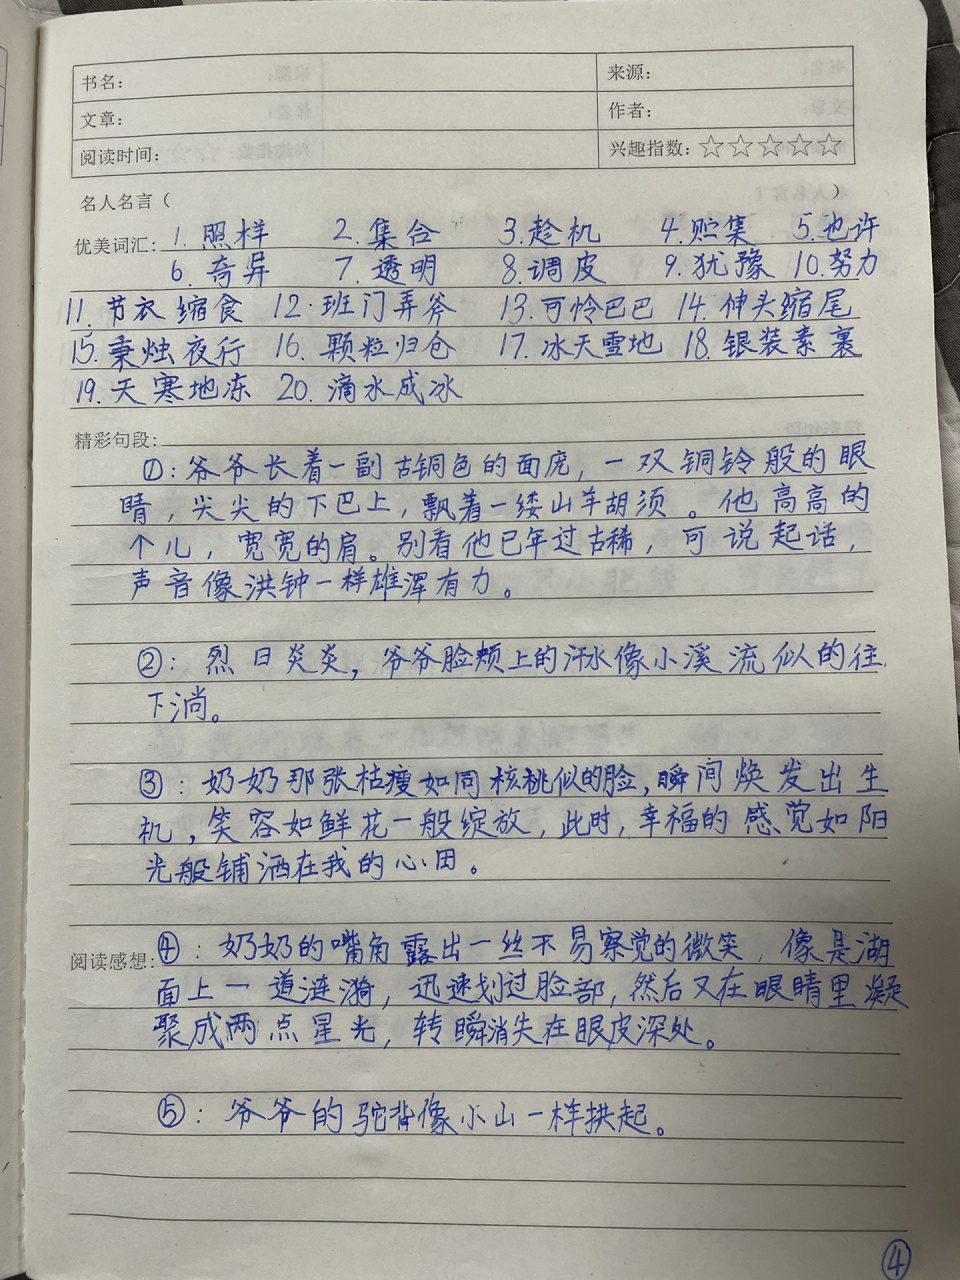 书名： 来源：
文章： 作者：
阅读时间： 兴趣指数：☆☆☆☆☆
名人名言（ ）
优美词汇：1. 照样 2. 集合 3. 趁机 4. 贮集 5. 也许
6. 奇异 7. 透明 8. 调皮 9. 犹豫 10. 努力
11. 节衣缩食 12. 班门弄斧 13. 可怜巴巴 14. 伸头缩尾
15. 秉烛夜行 16. 颗粒归仓 17. 冰天雪地 18. 银装素裹
19. 天寒地冻 20. 滴水成冰
精彩句段：
①：爷爷长着一副古铜色的面庞，一双铜铃般的眼
睛，尖尖的下巴上，飘着一缕山羊胡须。他高高的
个儿，宽宽的肩。别看他已年过古稀，可说起话，
声音像洪钟一样雄浑有力。
②：烈日炎炎，爷爷脸颊上的汗水像小溪流似的往
下淌。
③：奶奶那张枯瘦如同核桃似的脸，瞬间焕发出生
机，笑容如鲜花一般绽放，此时，幸福的感觉如阳
光般铺洒在我的心田。
阅读感想：④：奶奶的嘴角露出一丝不易察觉的微笑，像是湖
面上一道涟漪，迅速划过脸部，然后又在眼睛里凝
聚成两点星光，转瞬消失在眼皮深处。
⑤：爷爷的驼背像小山一样拱起。
④